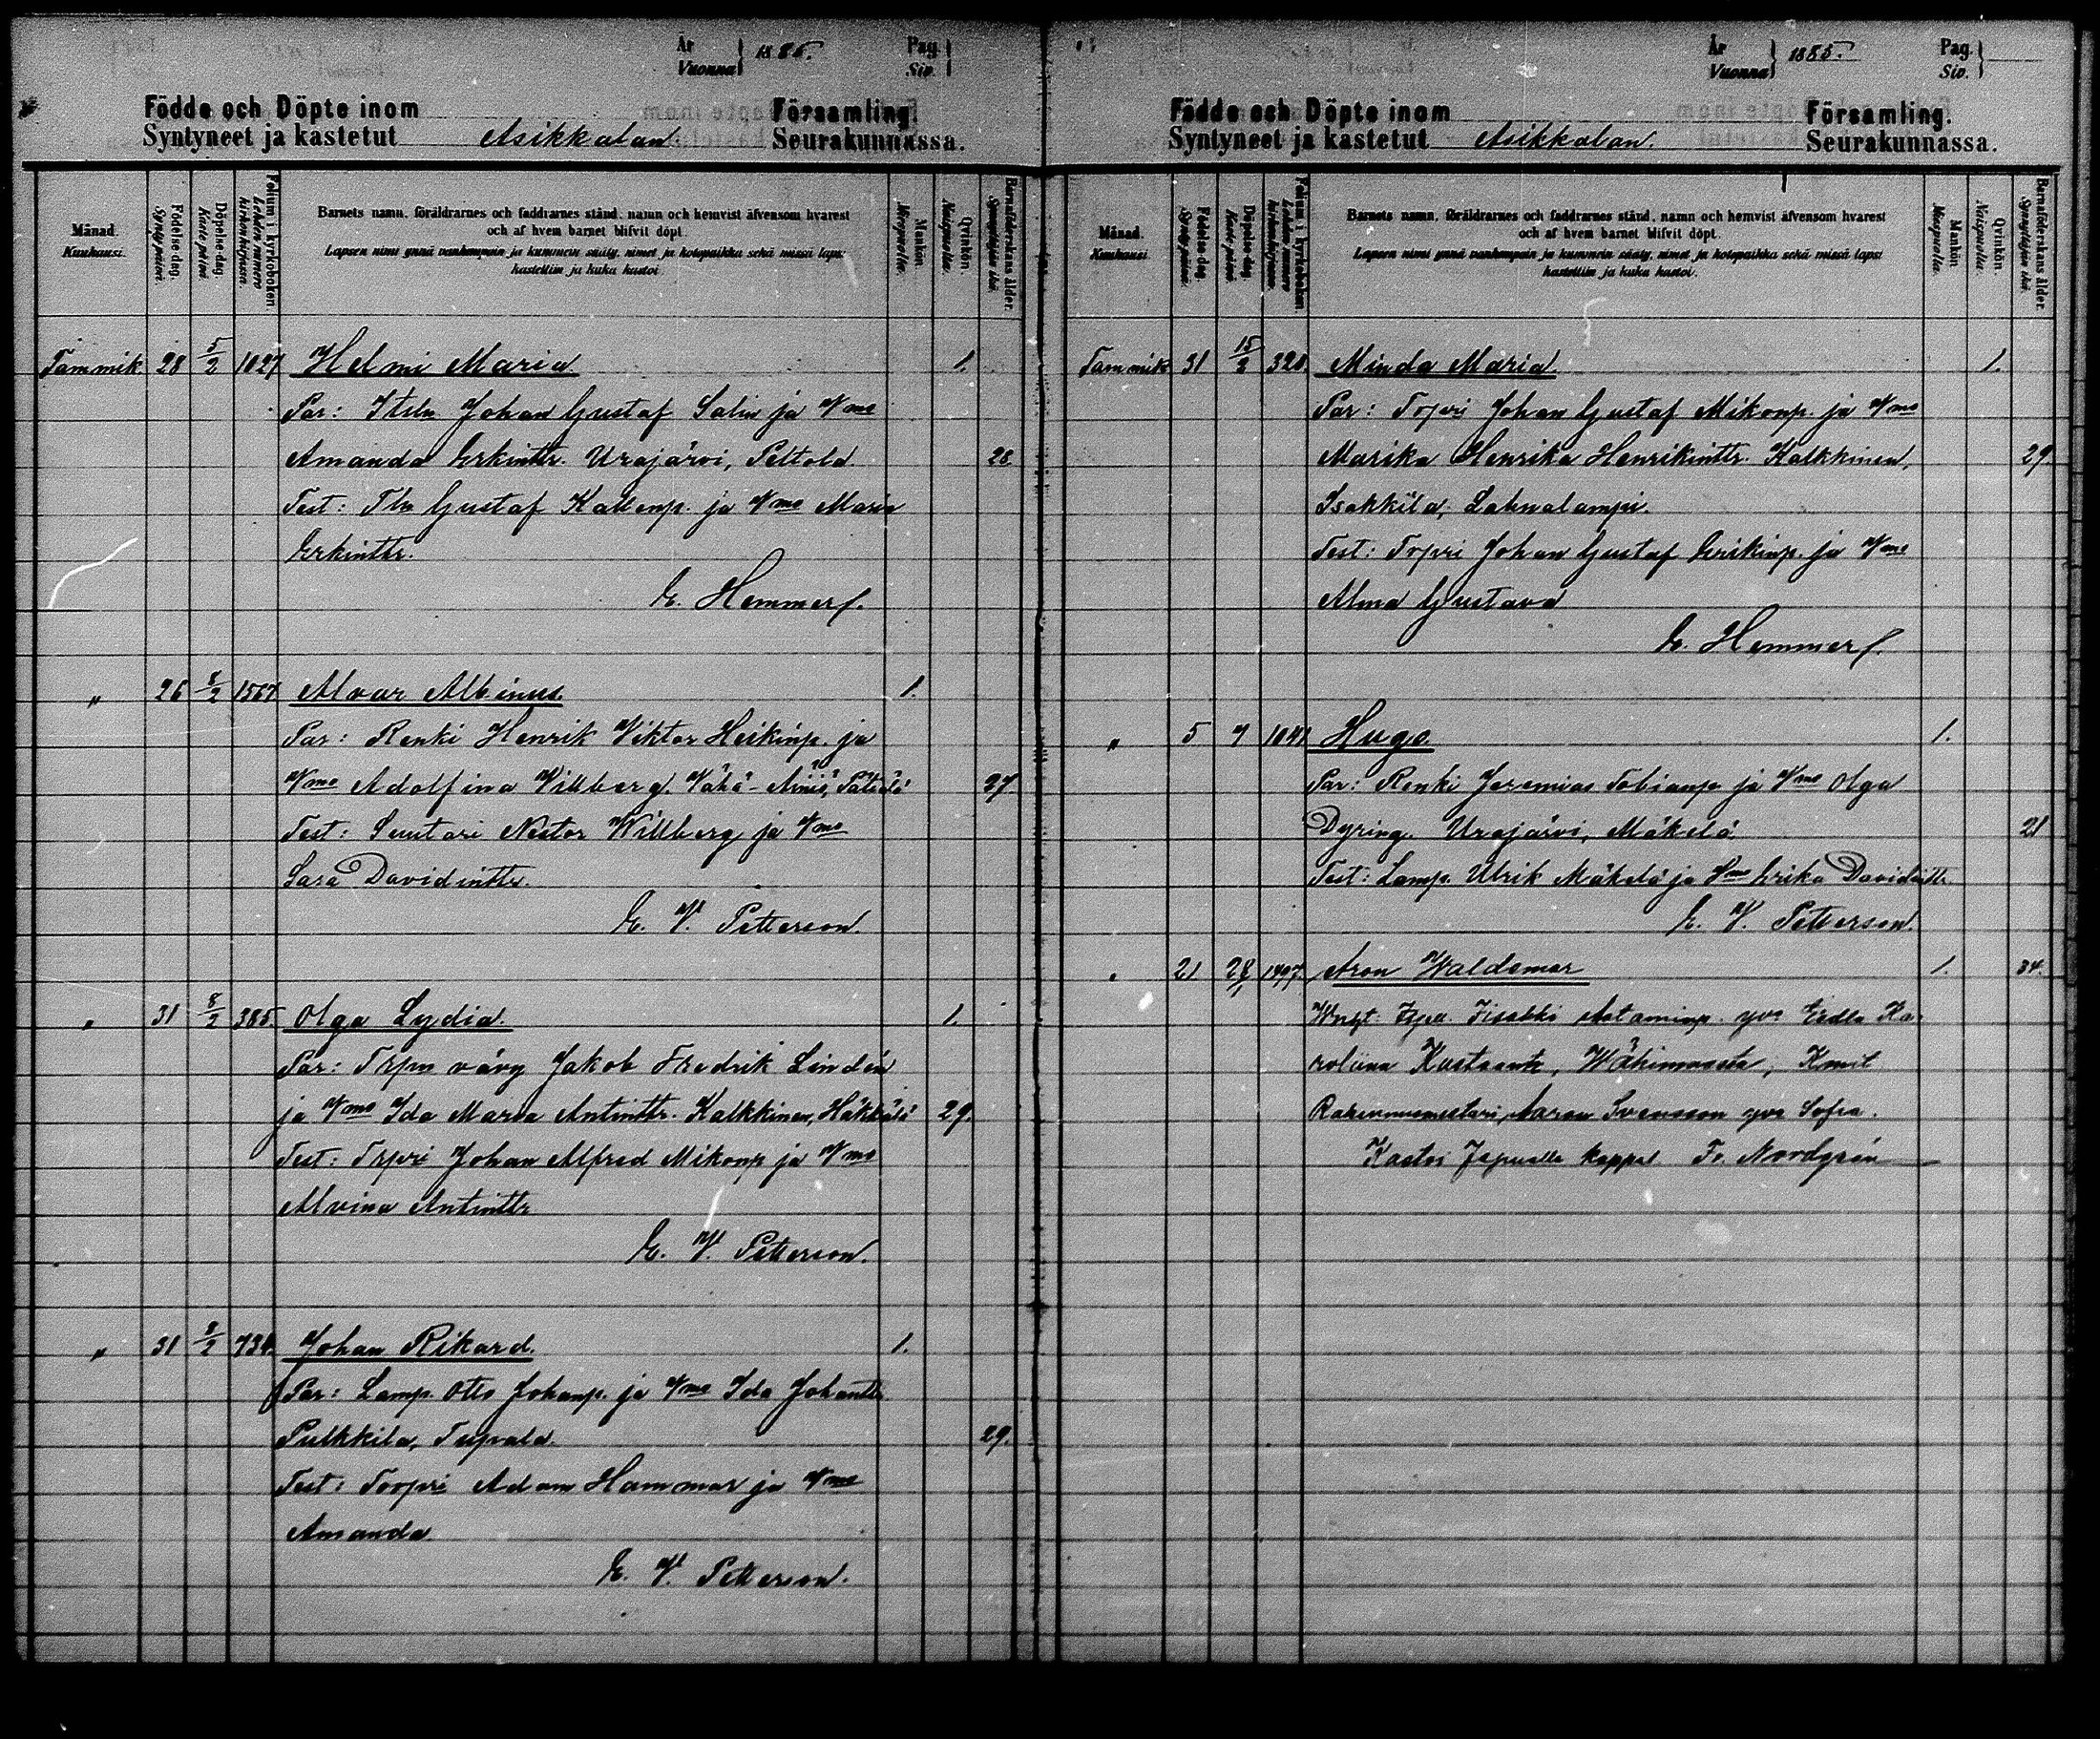 År
Vuonna 1885.
Pag.
Siv.
Födde och Döpte inom Församling.
Syntyneet ja kastetut Asikkalan Seurakunnassa.
Månad.
Kuukausi.
Födelse-dag.
Syntypäivä.
Döpelse-dag.
Kaste-päivä.
Folium i kyrkoboken.
Lehden numero kirkonkirjassa.
Barnets namn, föräldrarnes och faddrarnes stånd, namn och hemvist äfvensom hvarest
och af hvem barnet blifvit döpt.
Lapsen nimi ynnä vanhempain ja kummein sääty, nimet ja kotopaikka sekä missä laps
kastettiin ja kuka kastoi.
Mankön.
Miespuolia.
Qvinkön.
Naispuolia.
Barnaföderskans ålder.
Synnyttäjän ikä.
Tammik 28 5/2 1027 Helmi Maria 1.
Par: Itsln Johan Gustaf Salin ja Vmo
Amanda Erkinttr. Urajärvi, Peltola 28
Test: Tln Gustaf Kallenp. ja Vmo Maria
Erkinttr.
E. Hemmer
" 26 8/2 1567 Alvar Albinus. 1.
Par: Renki Henrik Viktor Heikinp. ja
Vmo Adolfina Willberg. Vähä-Äiniö, Pätiälä 27.
Test: Suutari Nestor Willberg ja Vmo
Sara Davidinttr.
E. V. Petterson.
" 31 8/2 385. Olga Lydia. 1.
Par: Trpn vävy Jakob Fredrik Lindén
ja Vmo Ida Maria Antinttr. Kalkkinen, Häkkälä 29.
Test: Trpri Johan Alfred Mikonp ja Vmo
Alvina Antinttr
E. V. Petterson.
" 31 8/2 734. Johan Rikard. 1.
Par: Lamp. Otto Johanp. ja Vmo Ida Johanttr
Pulkkila, Tupala. 29.
Test: Torpri Adam Hammar ja Vmo
Amanda
E. V. Petterson.
År
Vuonna 1885.
Pag.
Siv.
Födde och Döpte inom Församling.
Syntyneet ja kastetut Asikkalan. Seurakunnassa.
Månad.
Kuukausi.
Födelse-dag.
Syntypäivä.
Döpelse-dag.
Kaste-päivä.
Folium i kyrkoboken.
Lehden numero kirkonkirjassa.
Barnets namn, föräldrarnes och faddrarnes stånd, namn och hemvist äfvensom hvarest
och af hvem barnet blifvit döpt.
Lapsen nimi ynnä vanhempain ja kummein sääty, nimet ja kotopaikka sekä missä laps
kastettiin ja kuka kastoi.
Mankön
Miespuolia.
Qvinkön
Naispuolia.
Barnaföderskans ålder.
Synnyttäjän ikä.
Tammik 31 15/2 320. Minda Maria. 1.
Par: Torpri Johan Gustaf Mikonp. ja Vmo
Marika Henrika Henrikinttr. Kalkkinen, 29.
Isakkila, Lahnalampi.
Test: Torpri Johan Gustaf Erikinp. ja Vmo
Alma Gustava
E. Hemmer
" 5 7 1041 Hugo. 1.
Par: Renki Jeremias Tobianp. ja Vmo Olga
Dyring. Urajärvi, Mäkelä. 21
Test: Lamp. Ulrik Mäkelä ja Vmo Erika Davidinttr.
E. V. Petterson.
" 21 28/1 1497. Aron Waldemar 1. 34.
Iisakki Aataminp. Eedla Ka-
roliina Kustaantr,
Rakennusmestari Aaron Svensson Sofia.
Kastoi kappal. Fr. Nordgrén